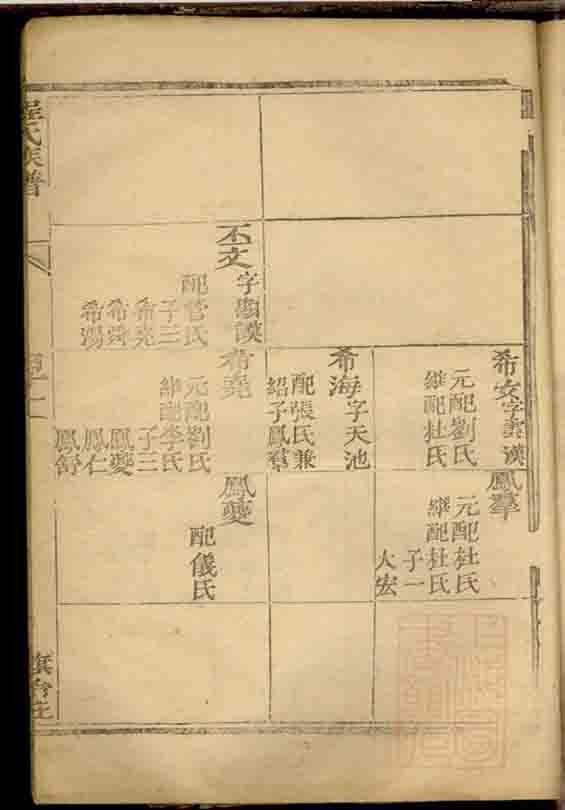 丕文
字顯謨
配管氏
子三
希堯
希舜
希湯
希文字謨
元配劉氏
繼配杜氏
希海字天池
配張氏兼
紹子鳳羣
希堯
元配劉氏
繼配李氏
子三
鳳夔
鳳仁
鳳舒
鳳羣
元配杜氏
繼配杜氏
子一
大宏
鳳夔
配儀氏
氏族譜